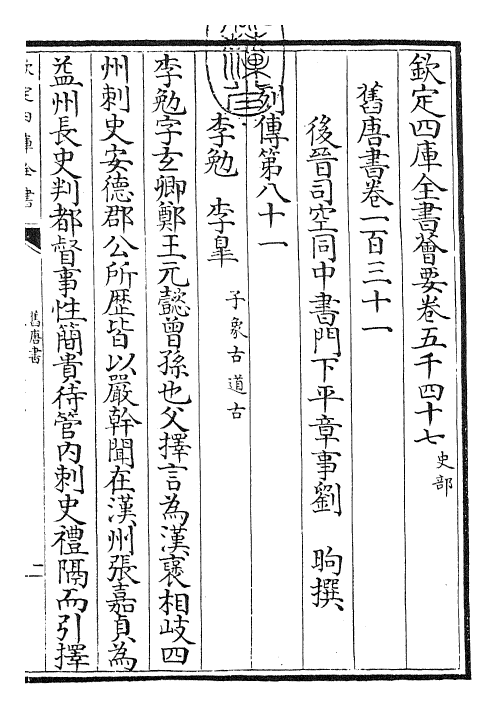 欽定四庫全書薈要卷五千四十七 史部
舊唐書卷一百三十一
後晉司空同中書門下平章事劉 昫撰
列傳第八十一
李勉 李皐 子象古 道古
李勉字玄卿鄭王元懿曾孫也父擇言為漢褒相岐四
州刺史安德郡公所歴皆以嚴幹聞在漢州張嘉貞為
益州長史判都督事性簡貴待管内刺史禮隔而引擇
欽定四庫全書
舊唐書